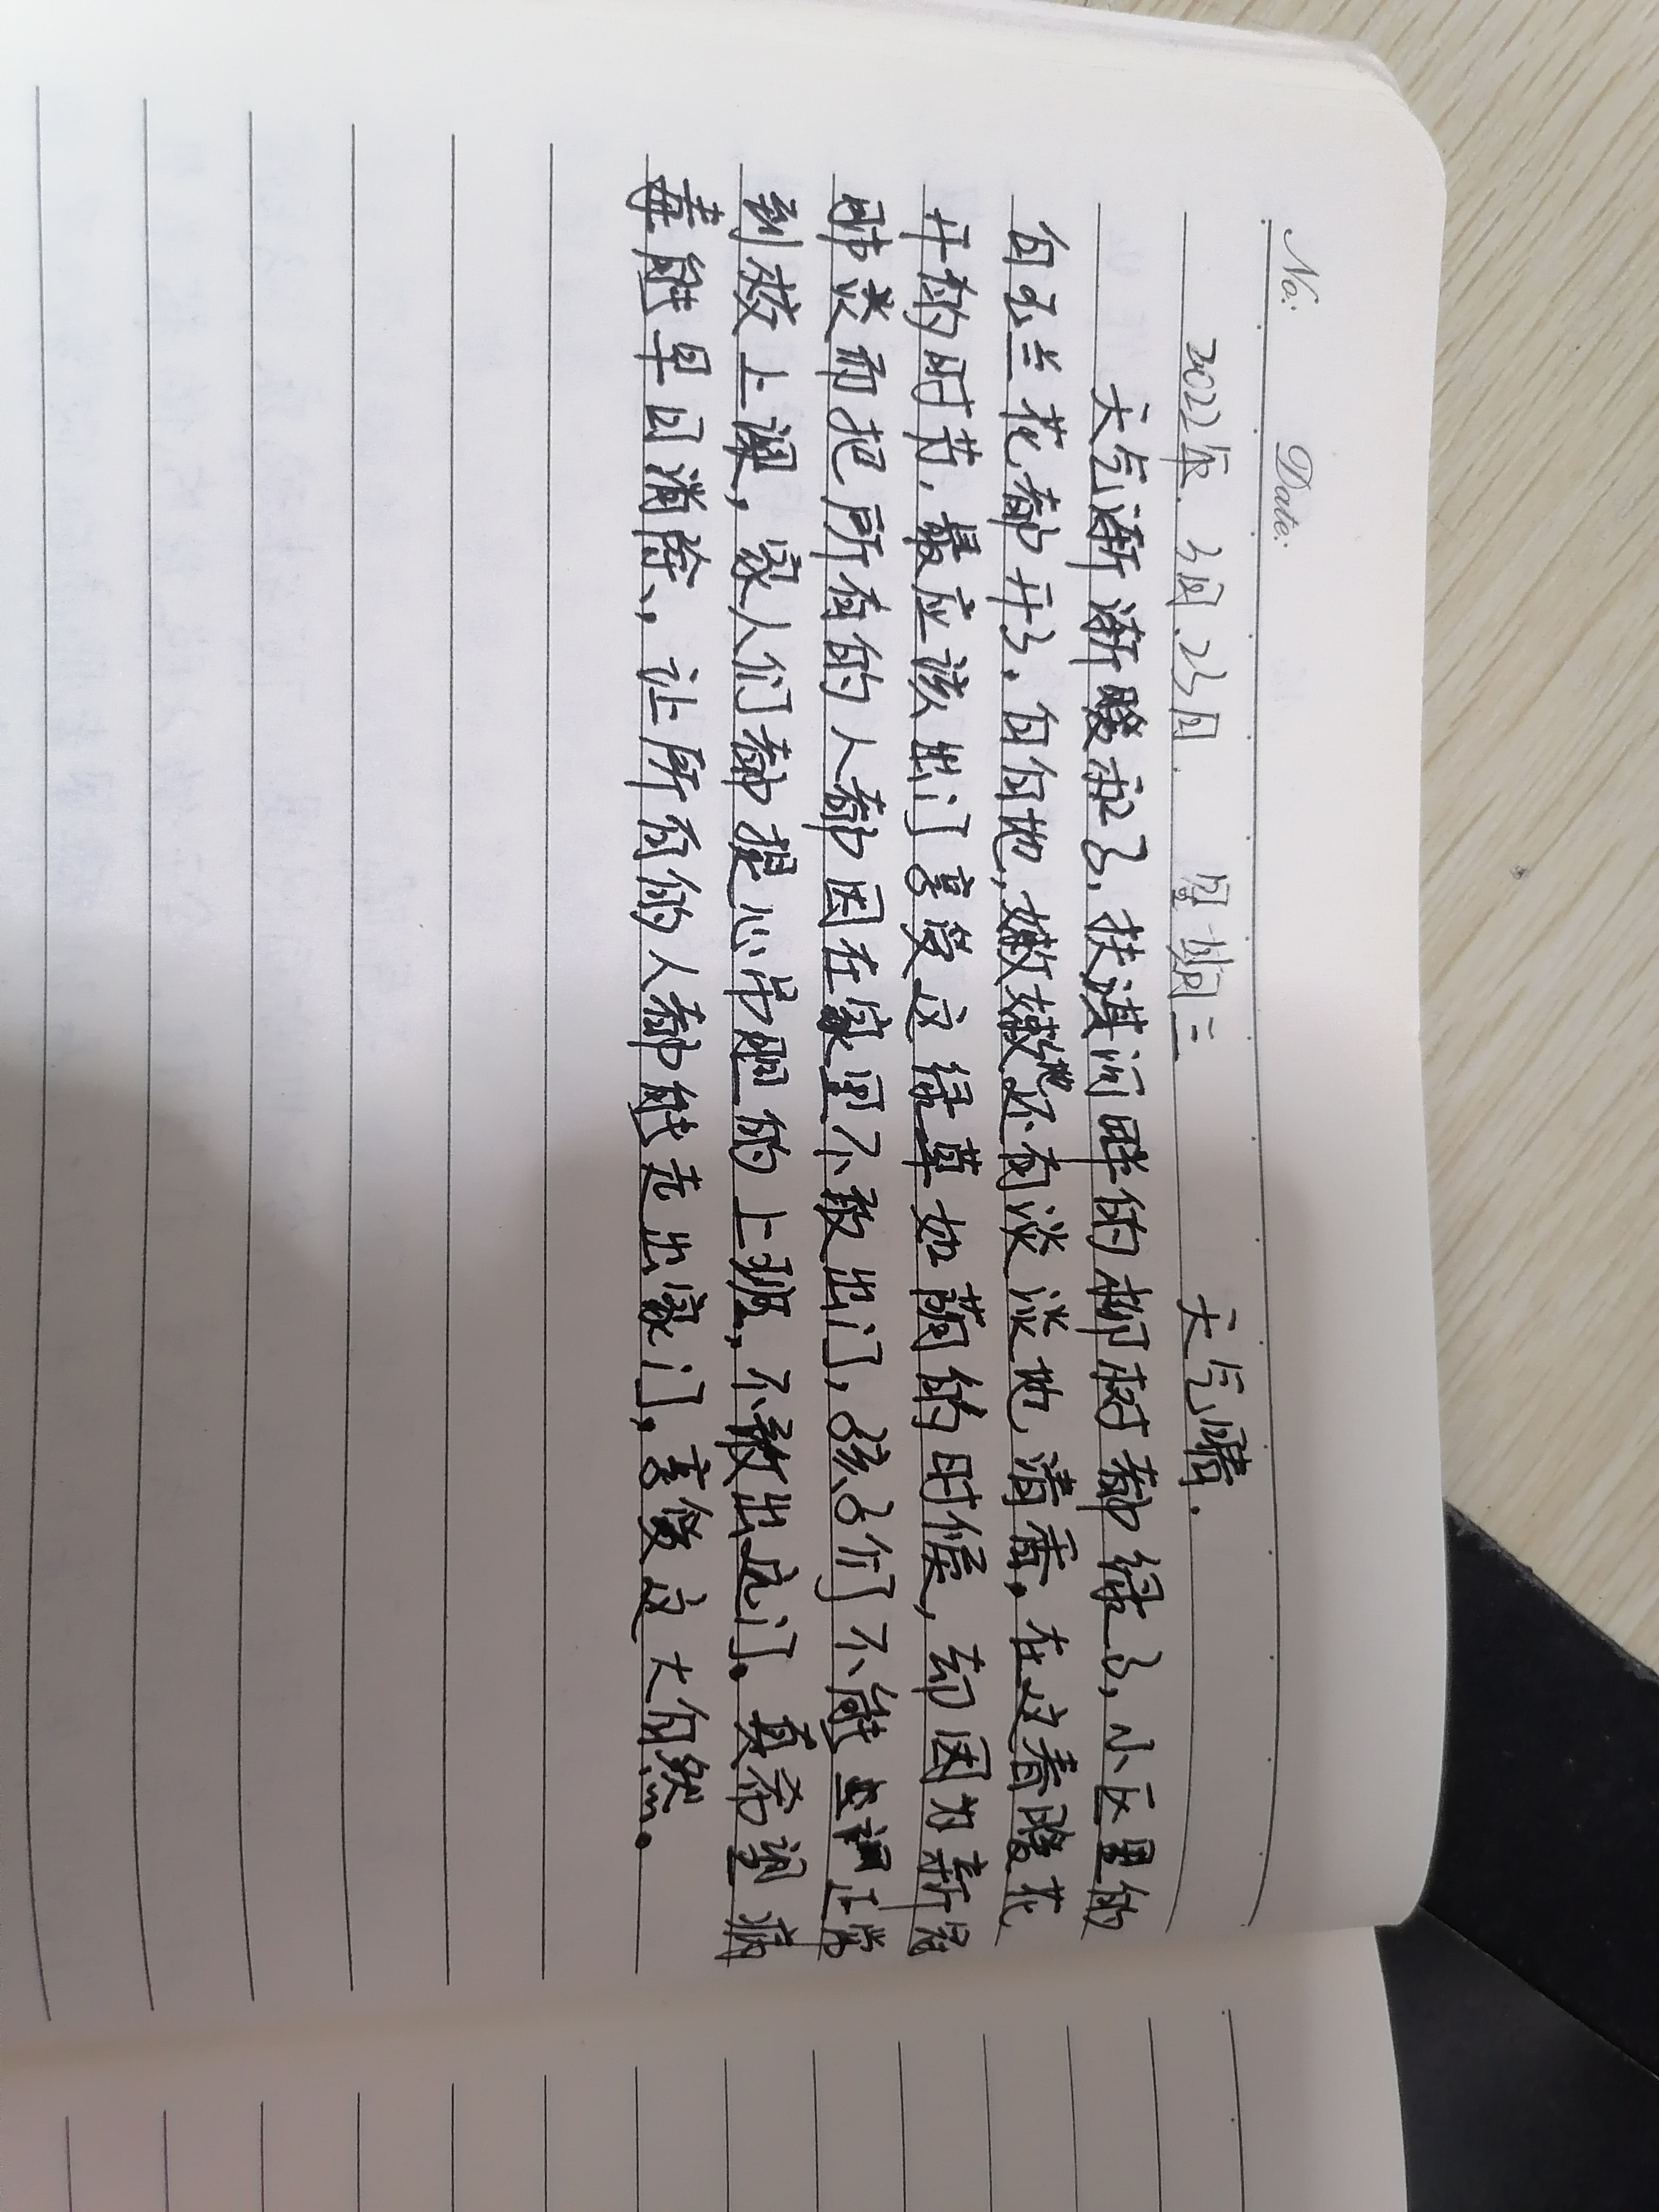 No: Date:
2022年.3月.23日. 星期三 天气晴.
天气渐渐暖和了,扶溪河畔的柳树都绿了,小区里的
白玉兰花都开了.白白地,嫩嫩地还有淡淡地清香,在这春暖花
开的时节,最应该出门享受这绿草如茵的时候,却因为新冠
肺炎而把所有的人都困在家里不敢出门,孩子们不能正常
到校上课,家人们都提心吊胆的上班,不敢出远门.真希望病
毒能早日消除,让所有的人都能走出家门,享受这大自然.